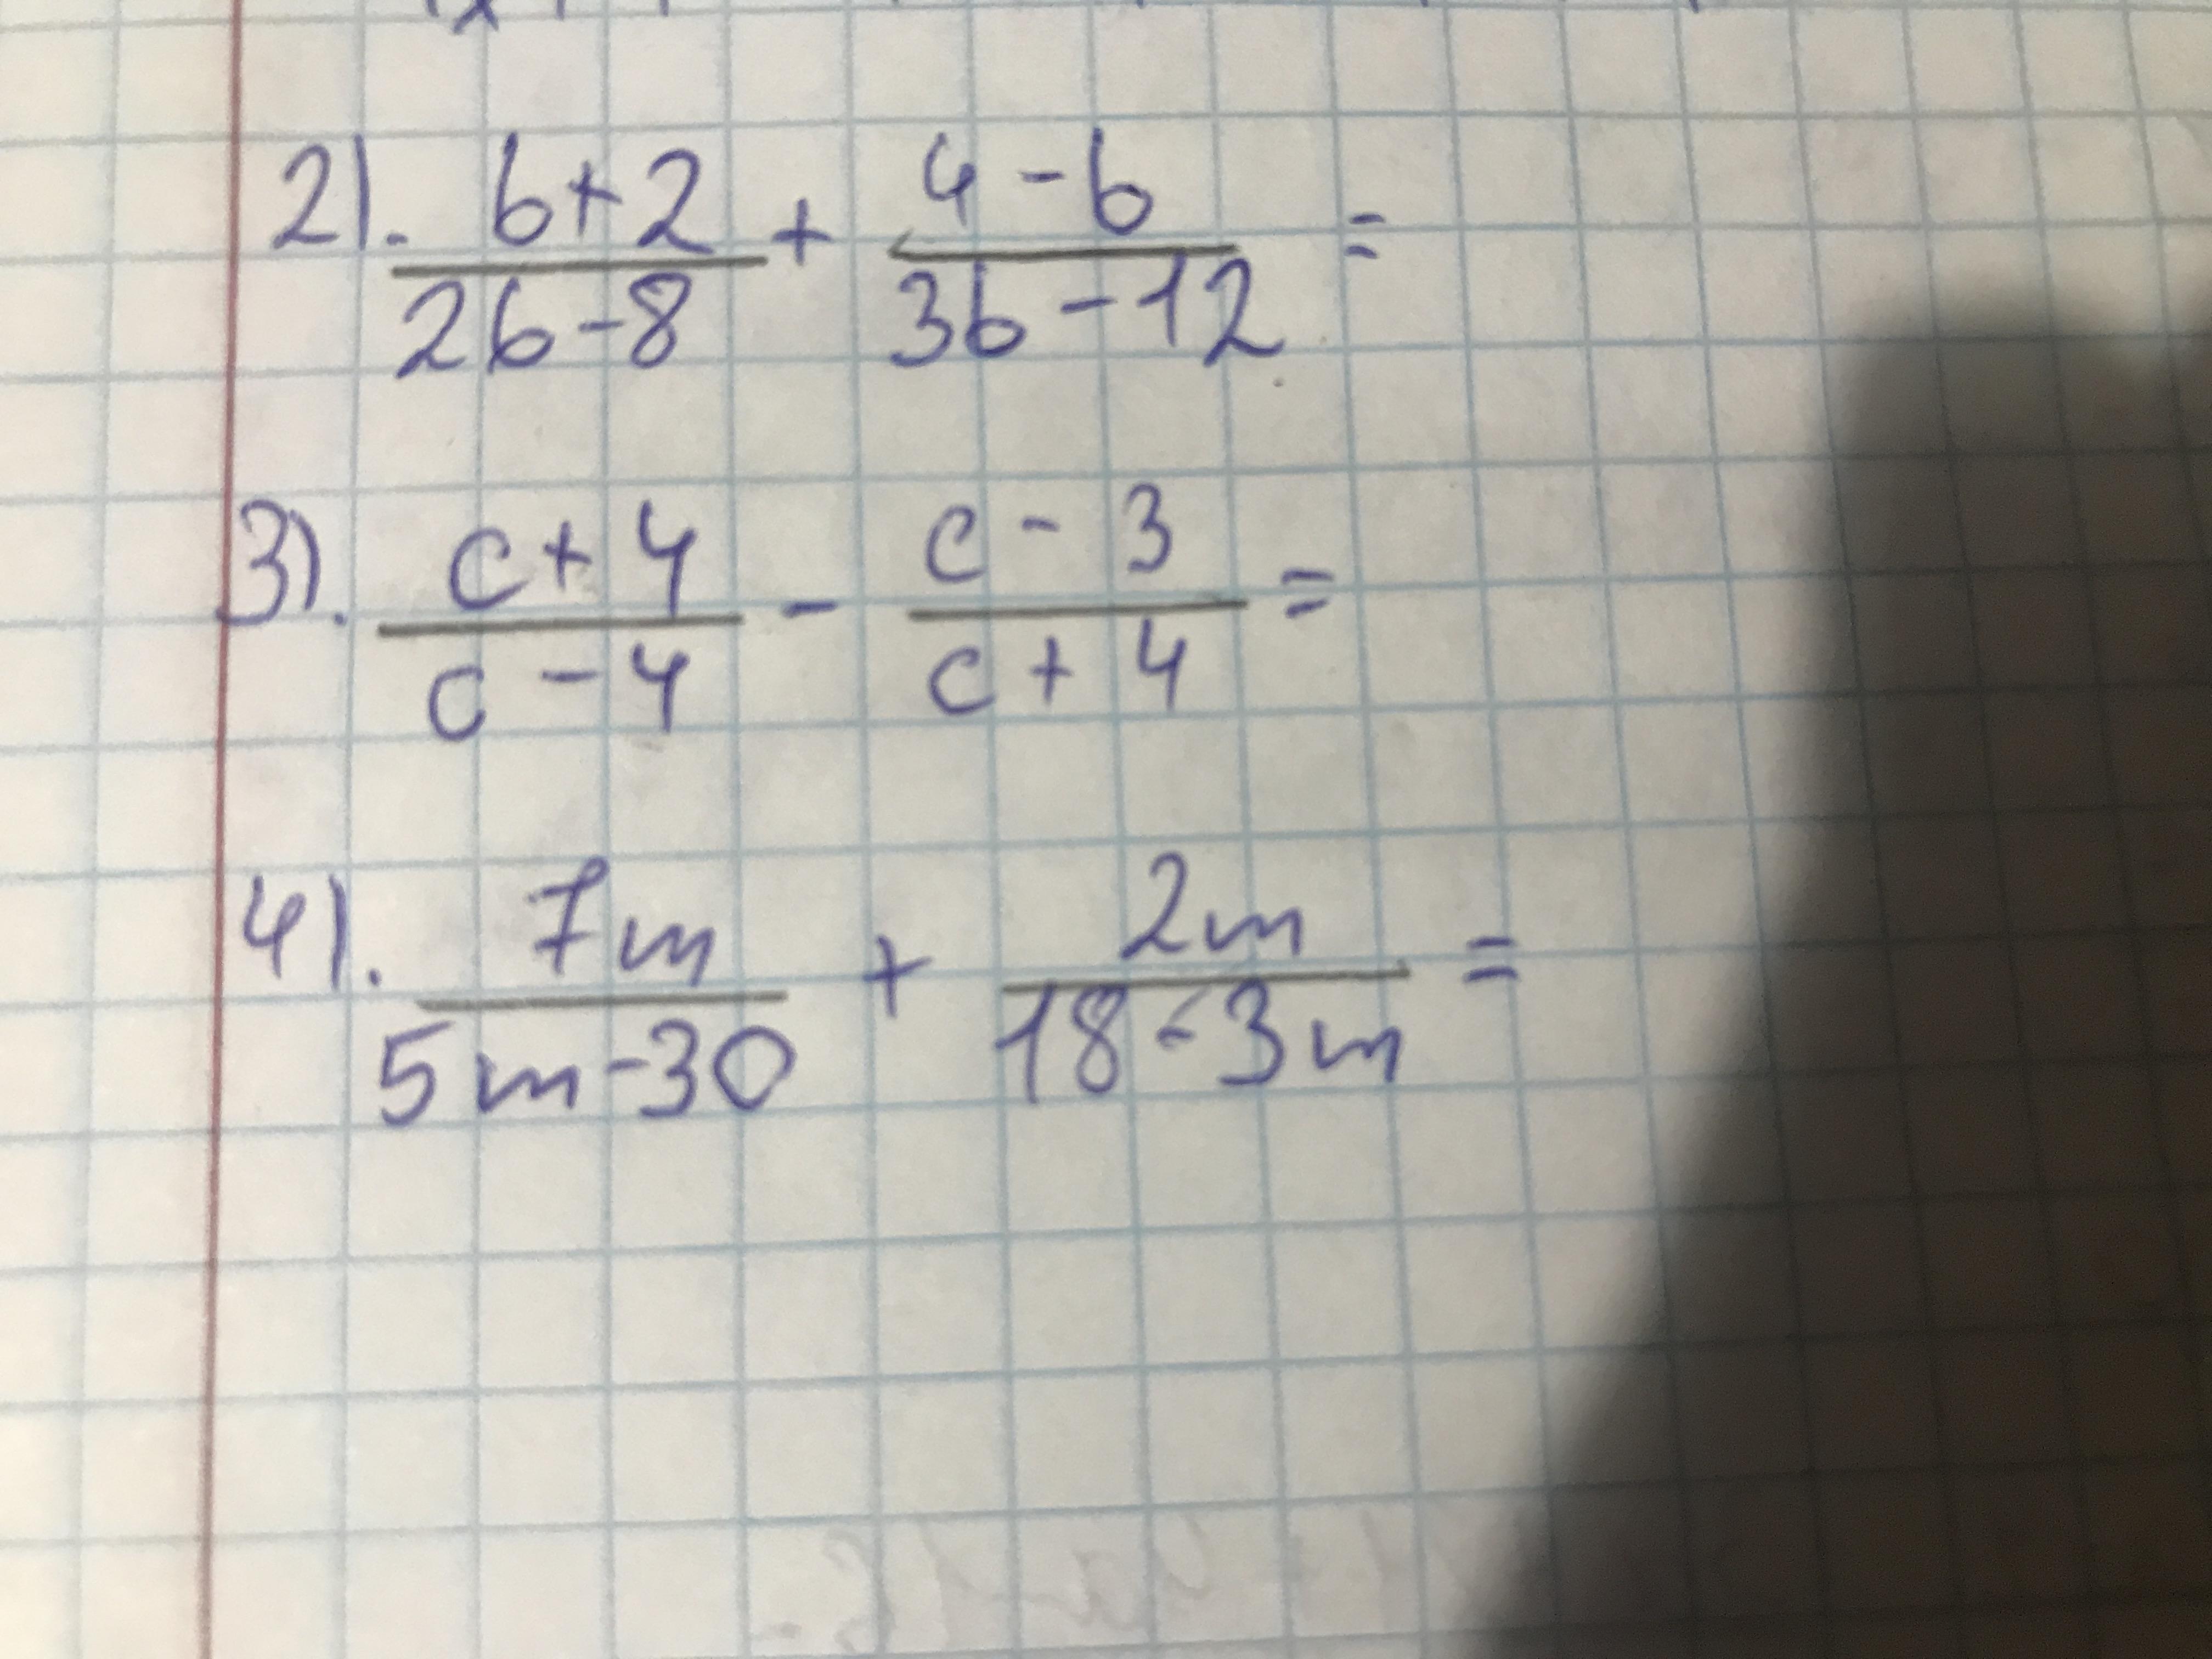 2). b+2/2b-8 + 4-b/3b-12 =
3). c+4/c-4 - c-3/c+4 =
4). 7m/5m-30 + 2m/18-3m =